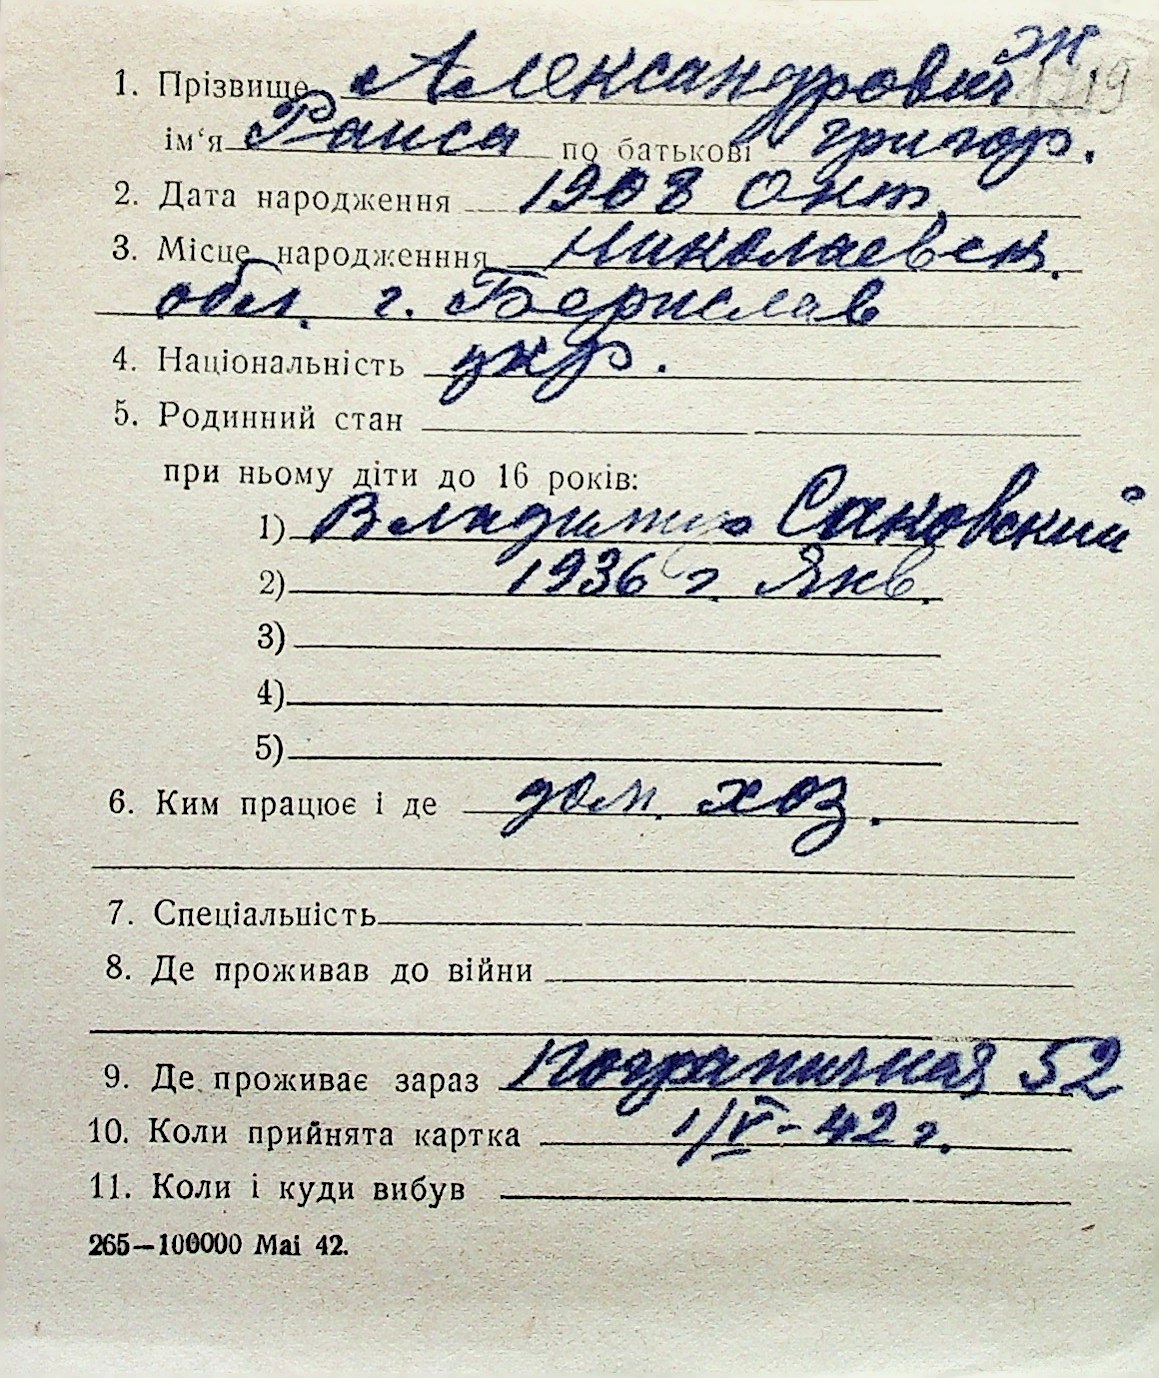 Ж
1. Прізвище Александрович
ім‘я Раиса по батькові григор.
2. Дата народження 1908 Окт.
3. Місце народженння Николаевск.
обл. г. Берислав
4. Національність укр.
5. Родинний стан
при ньому діти до 16 років:
1) Владимир Саковский
2) 1936 г. Янв.
3)
4)
5)
6. Ким працює і де дом. хоз.
7. Спеціальність
8. Де проживав до війни
9. Де проживає зараз Пограничная 52
10. Коли прийнята картка 1/V-42 г.
11. Коли і куди вибув
265—100000 Маі 42.